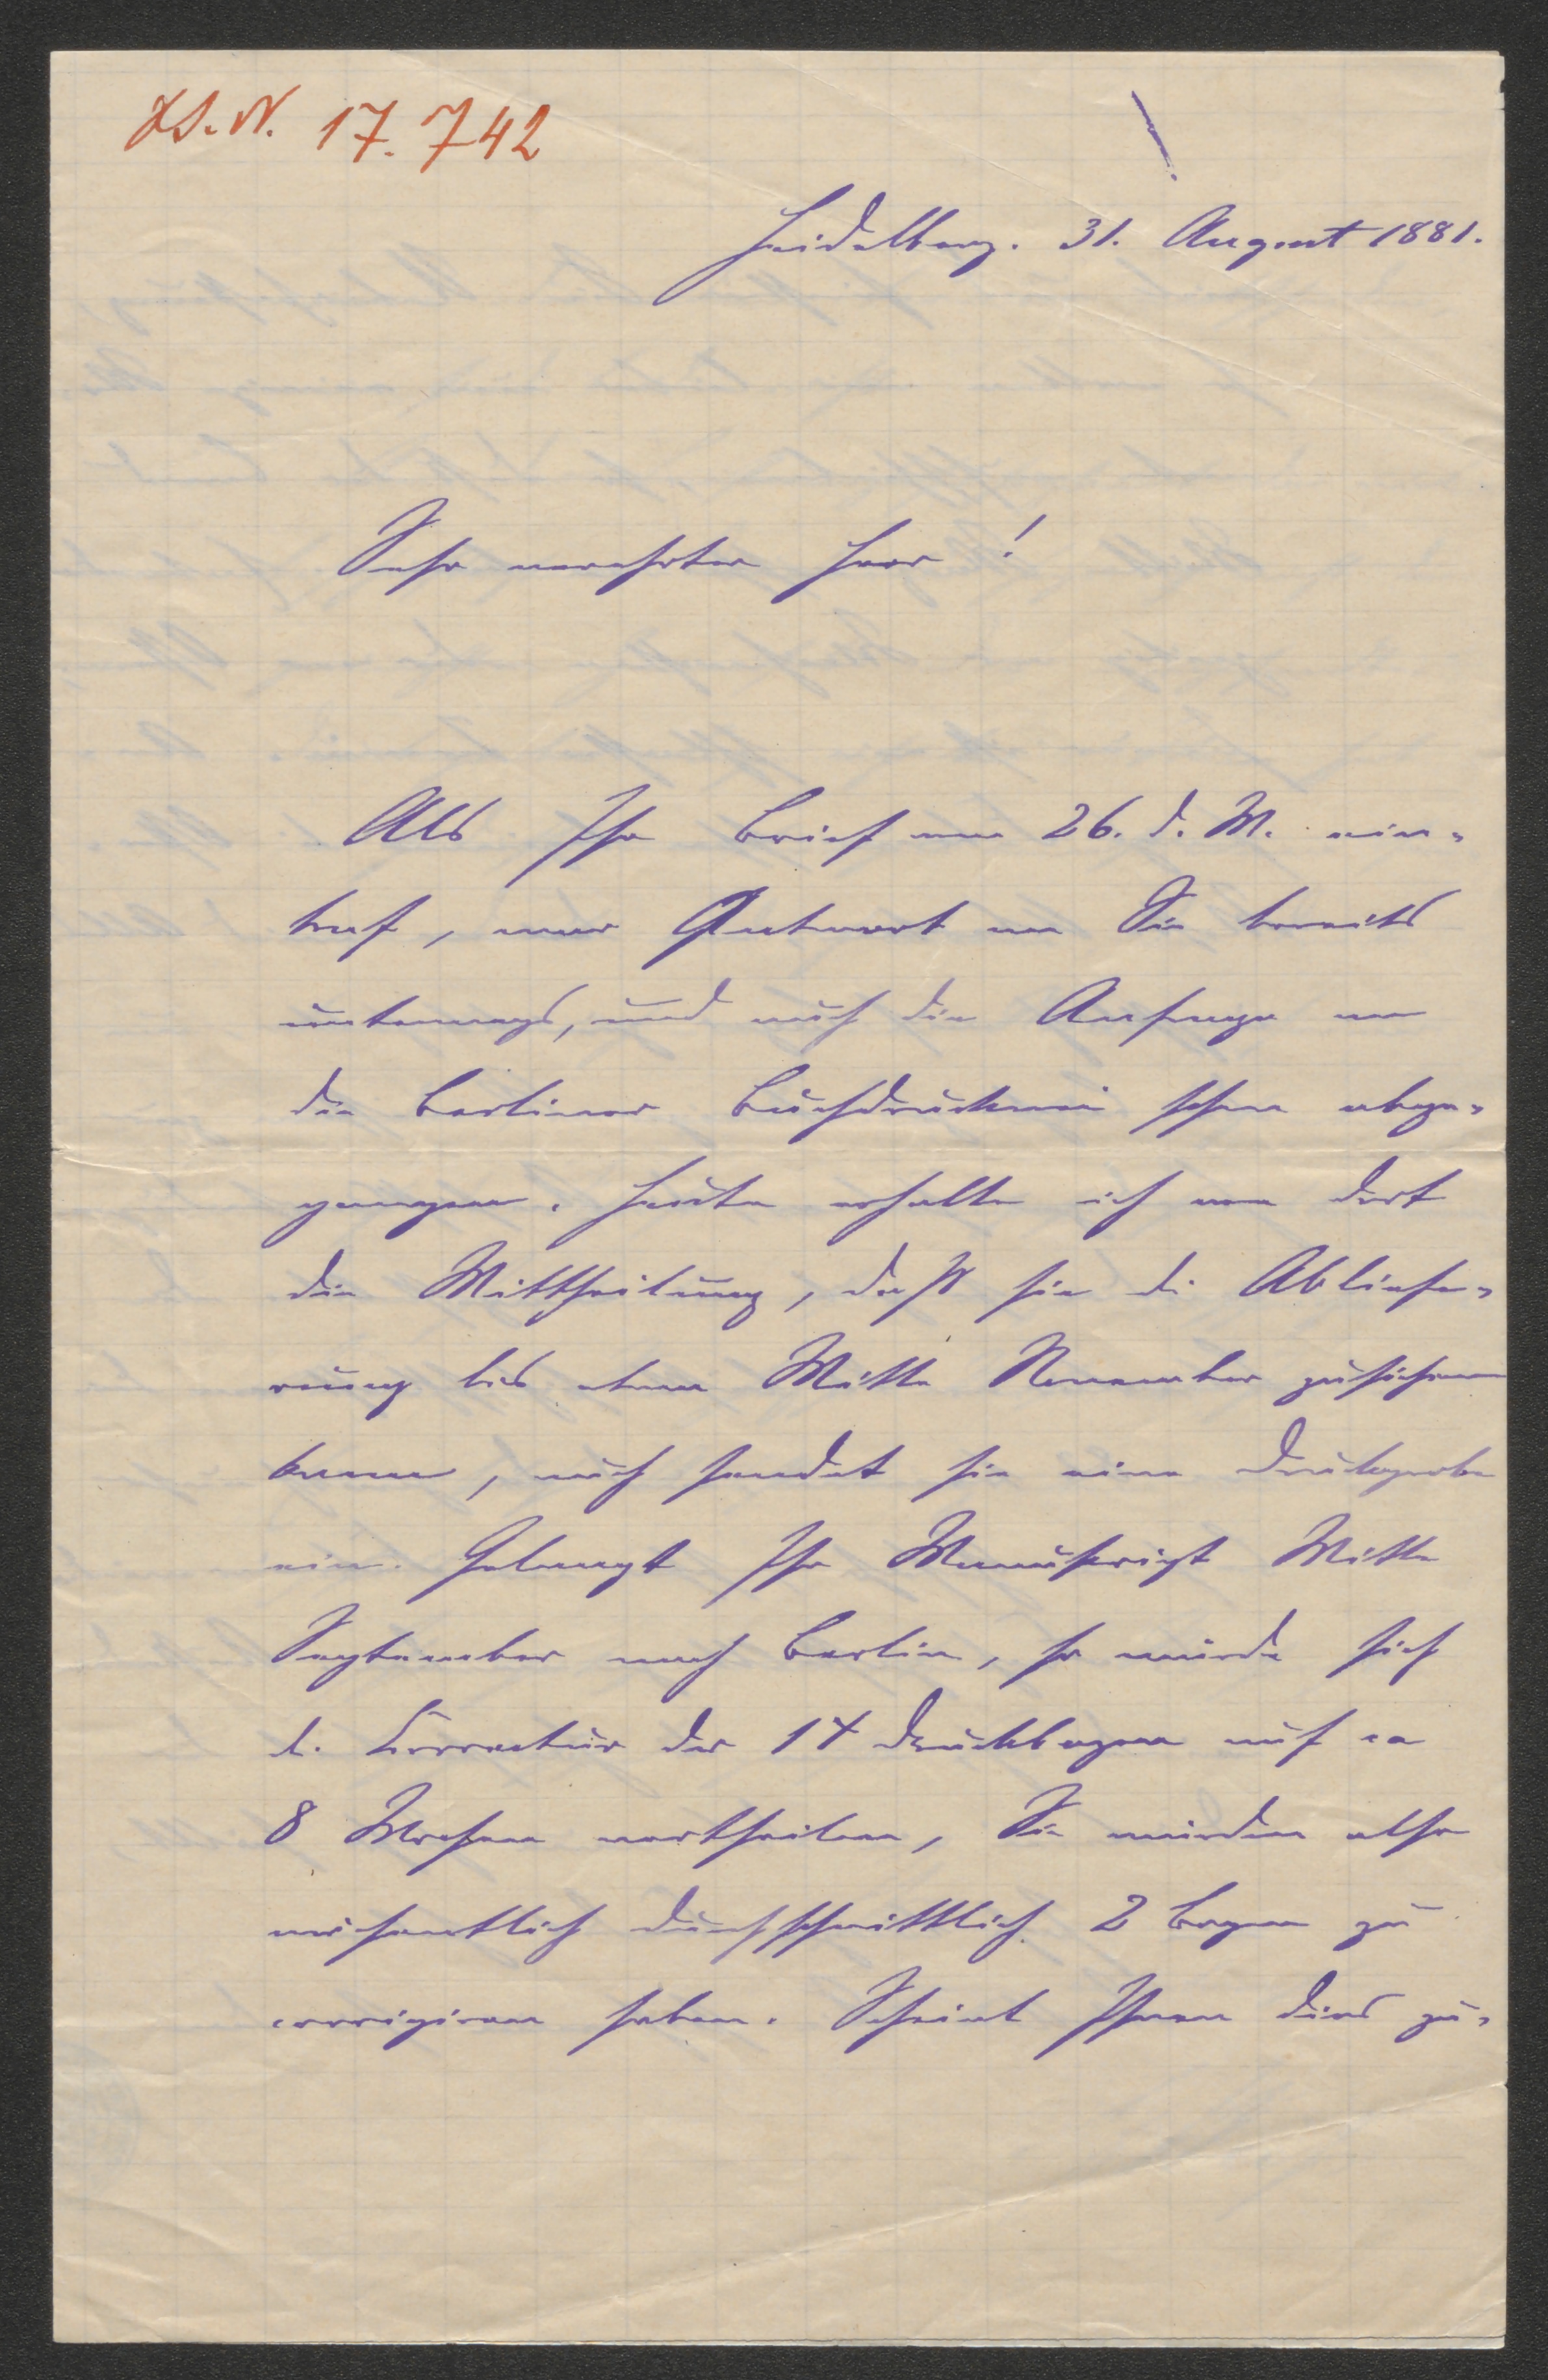 H.S.N. 17.742
Heidelberg. 31. August 1881.
Sehr verehrter Herr!
Als Ihr Brief vom 26. d. M. ein-
traf, war Antwort an Sie bereits
unterwegs, und auch die Anfrage an
die Berliner Buchdruckerei schon abge-
gangen. Heute erhalte ich von dort
die Mittheilung, daß sie die Abliefe-
rung bis etwa Mitte November zusichern
kann, auch sendet sie eine Druckprobe
ein. Gelangt Ihr Manuskript Mitte
September nach Berlin, so würde sich
d. Correctur der 14 Druckbogen auf ca
8 Wochen vertheilen, Sie würden also
wöchentlich durchschnittlich 2 Bogen zu
corrigiren haben. Scheint Ihnen dies zu-